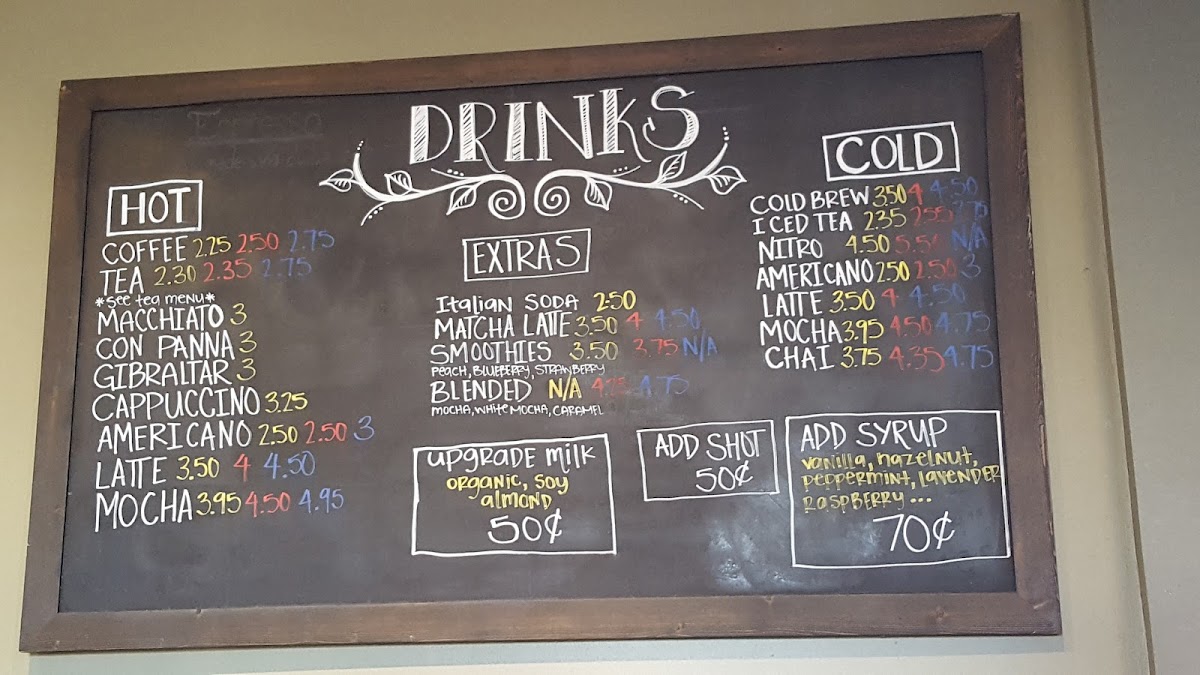 DRINKS
HOT
COFFEE 2.25 2.50 2.75
TEA 2.30 2.35 2.75
*see tea menu*
MACCHIATO 3
CON PANNA 3
GIBRALTAR 3
CAPPUCCINO 3.25
AMERICANO 2.50 2.50 3
LATTE 3.50 4 4.50
MOCHA 3.95 4.50 4.95
EXTRAS
Italian SODA 2.50
MATCHA LATTE 3.50 4 4.50
SMOOTHIES 3.50 3.75 N/A
PEACH, BLUEBERRY, STRAWBERRY
BLENDED N/A 4.75
MOCHA, WHITE MOCHA, CARAMEL
upgrade milk
organic, soy
almond
50¢
ADD SHOT
50¢
COLD
COLD BREW 3.50 4 4.50
ICED TEA 2.35 2.55 2.75
NITRO 4.50 5.50 N/A
AMERICANO 2.50 2.50 3
LATTE 3.50 4 4.50
MOCHA 3.95 4.50 4.75
CHAI 3.75 4.35 4.75
ADD SYRUP
vanilla, hazelnut,
peppermint, lavender
raspberry ...
70¢